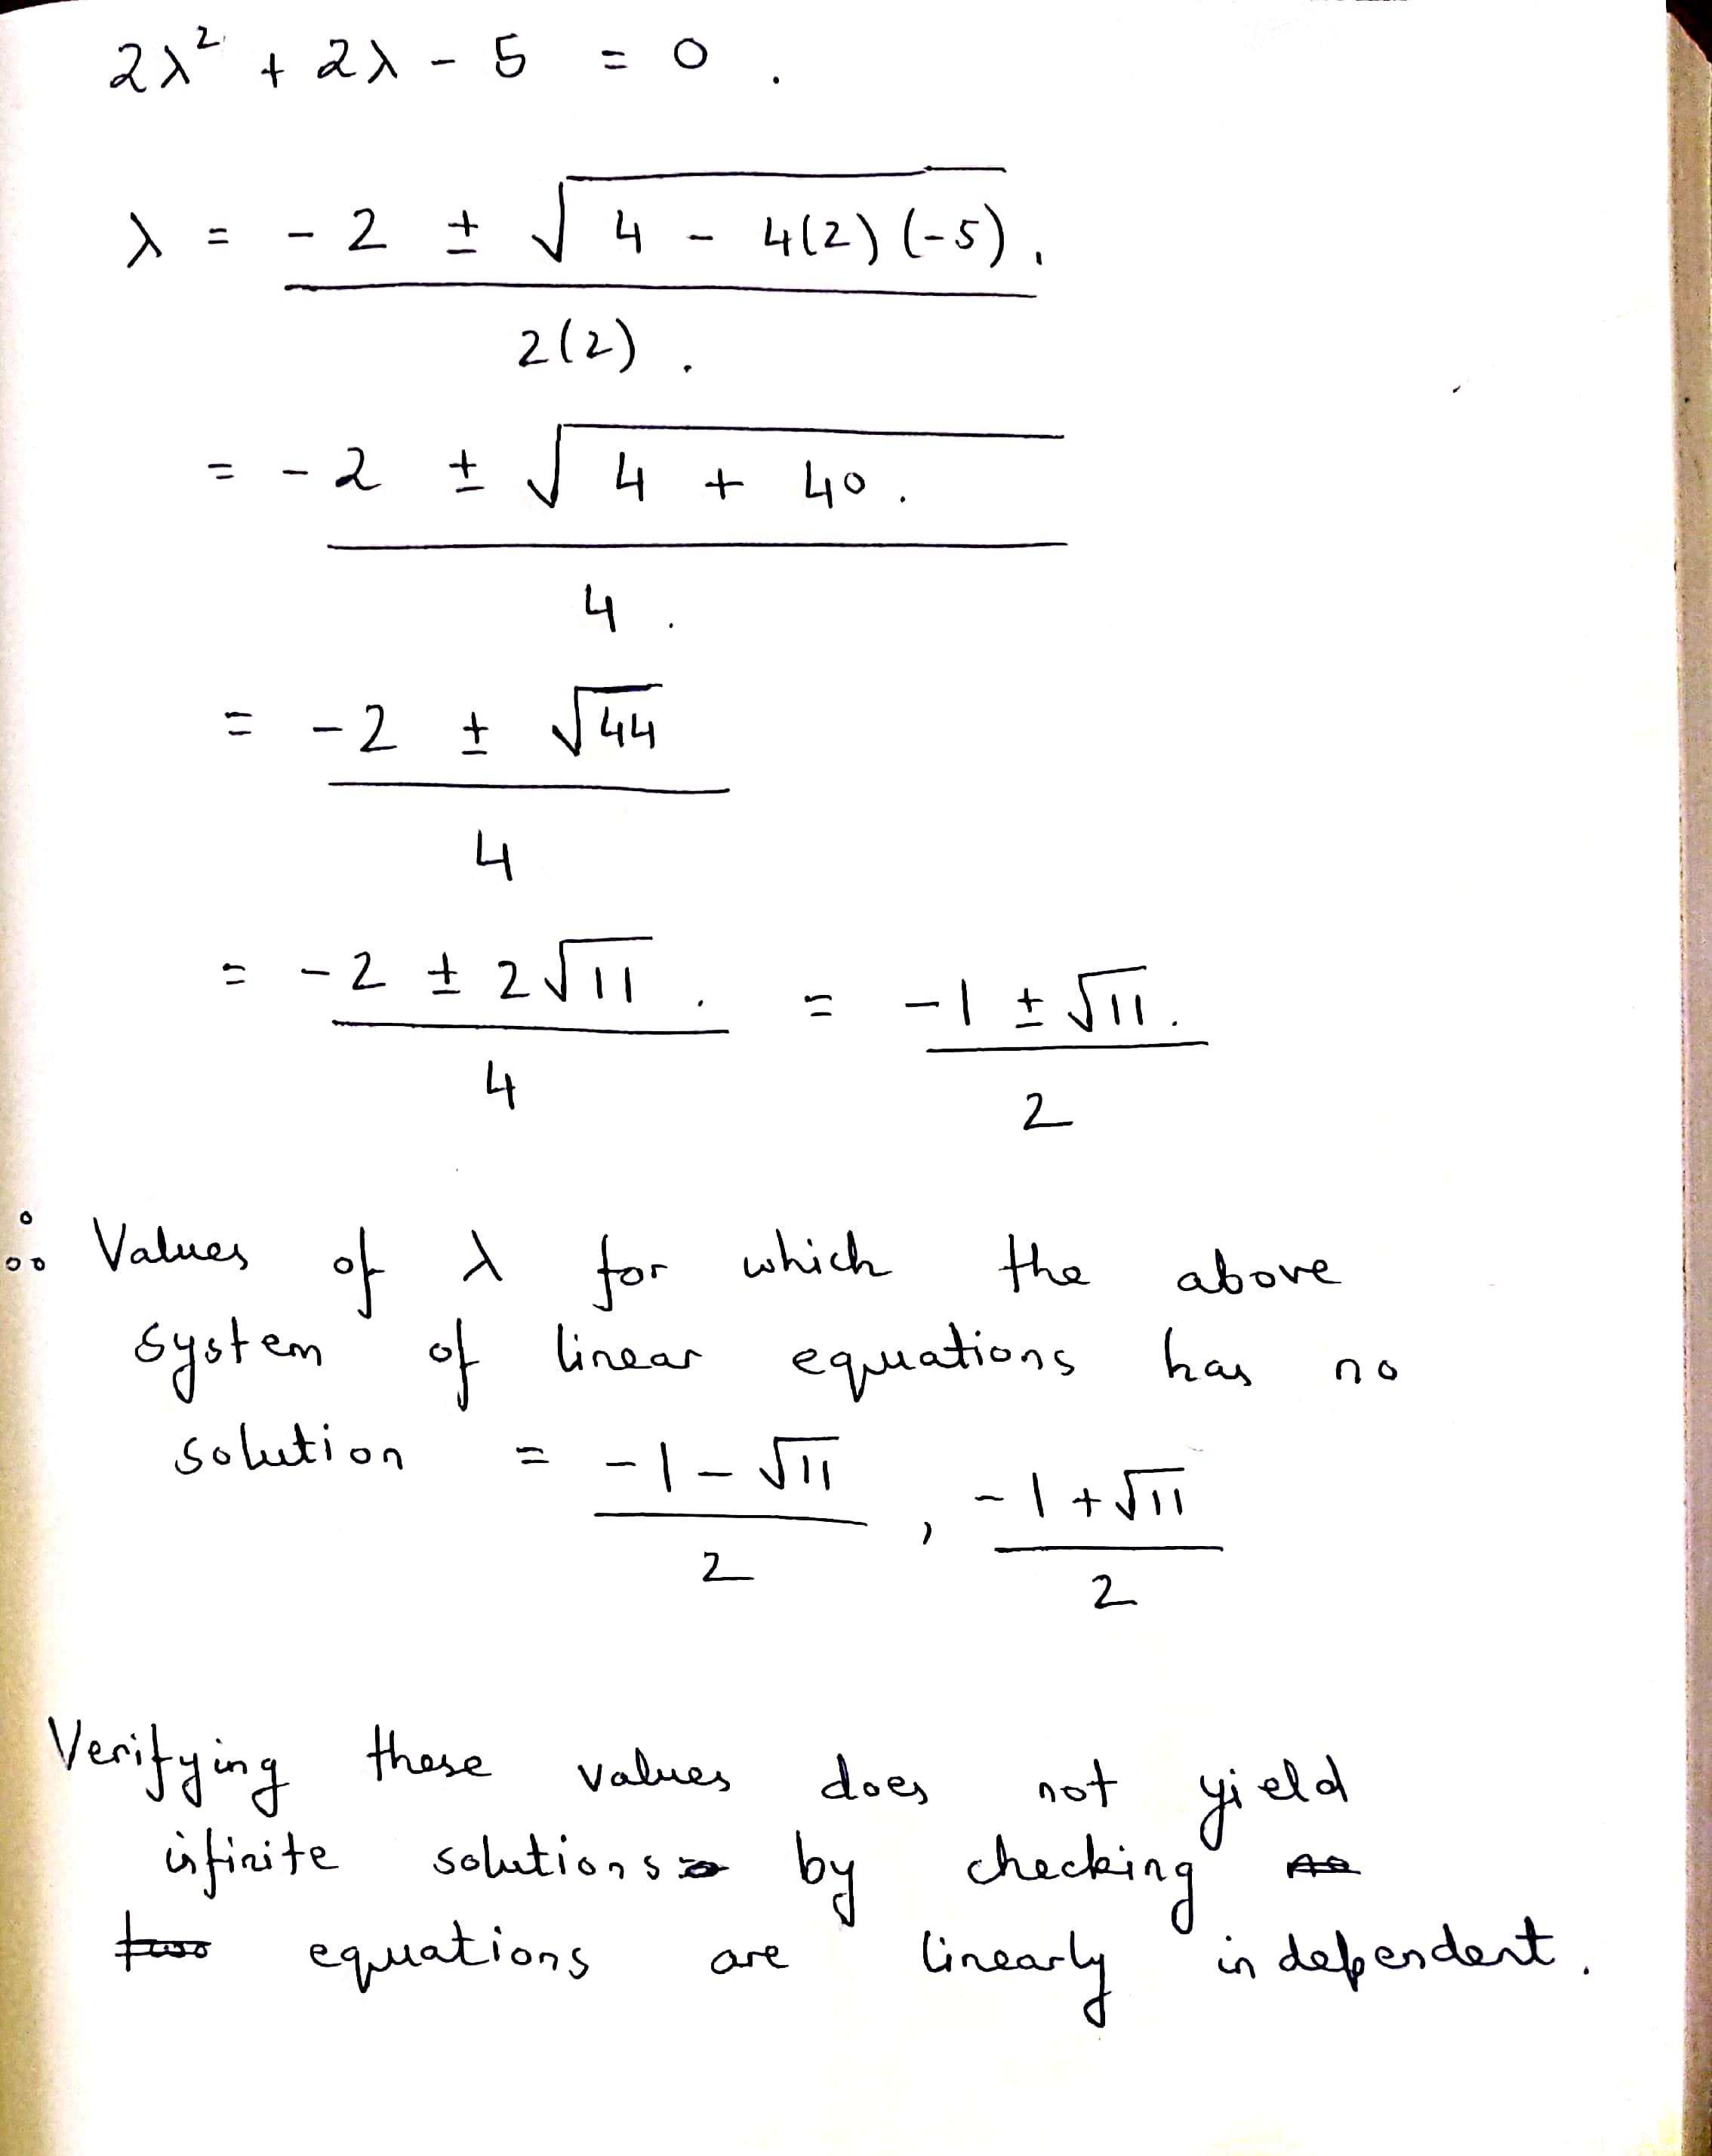 2λ² + 2λ - 5 = 0 .
λ = - 2 ± √4 - 4(2)(-5) .
2(2) .
= - 2 ± √4 + 40 .
4 .
= - 2 ± √44
4
= - 2 ± 2√11 . = - 1 ± √11 .
4
2
∴ Values of λ for which the above
system of linear equations has no
solution = - 1 - √11 , - 1 + √11
2
2
Verifying these values does not yield
infinite solutions by checking
two equations are linearly independent .